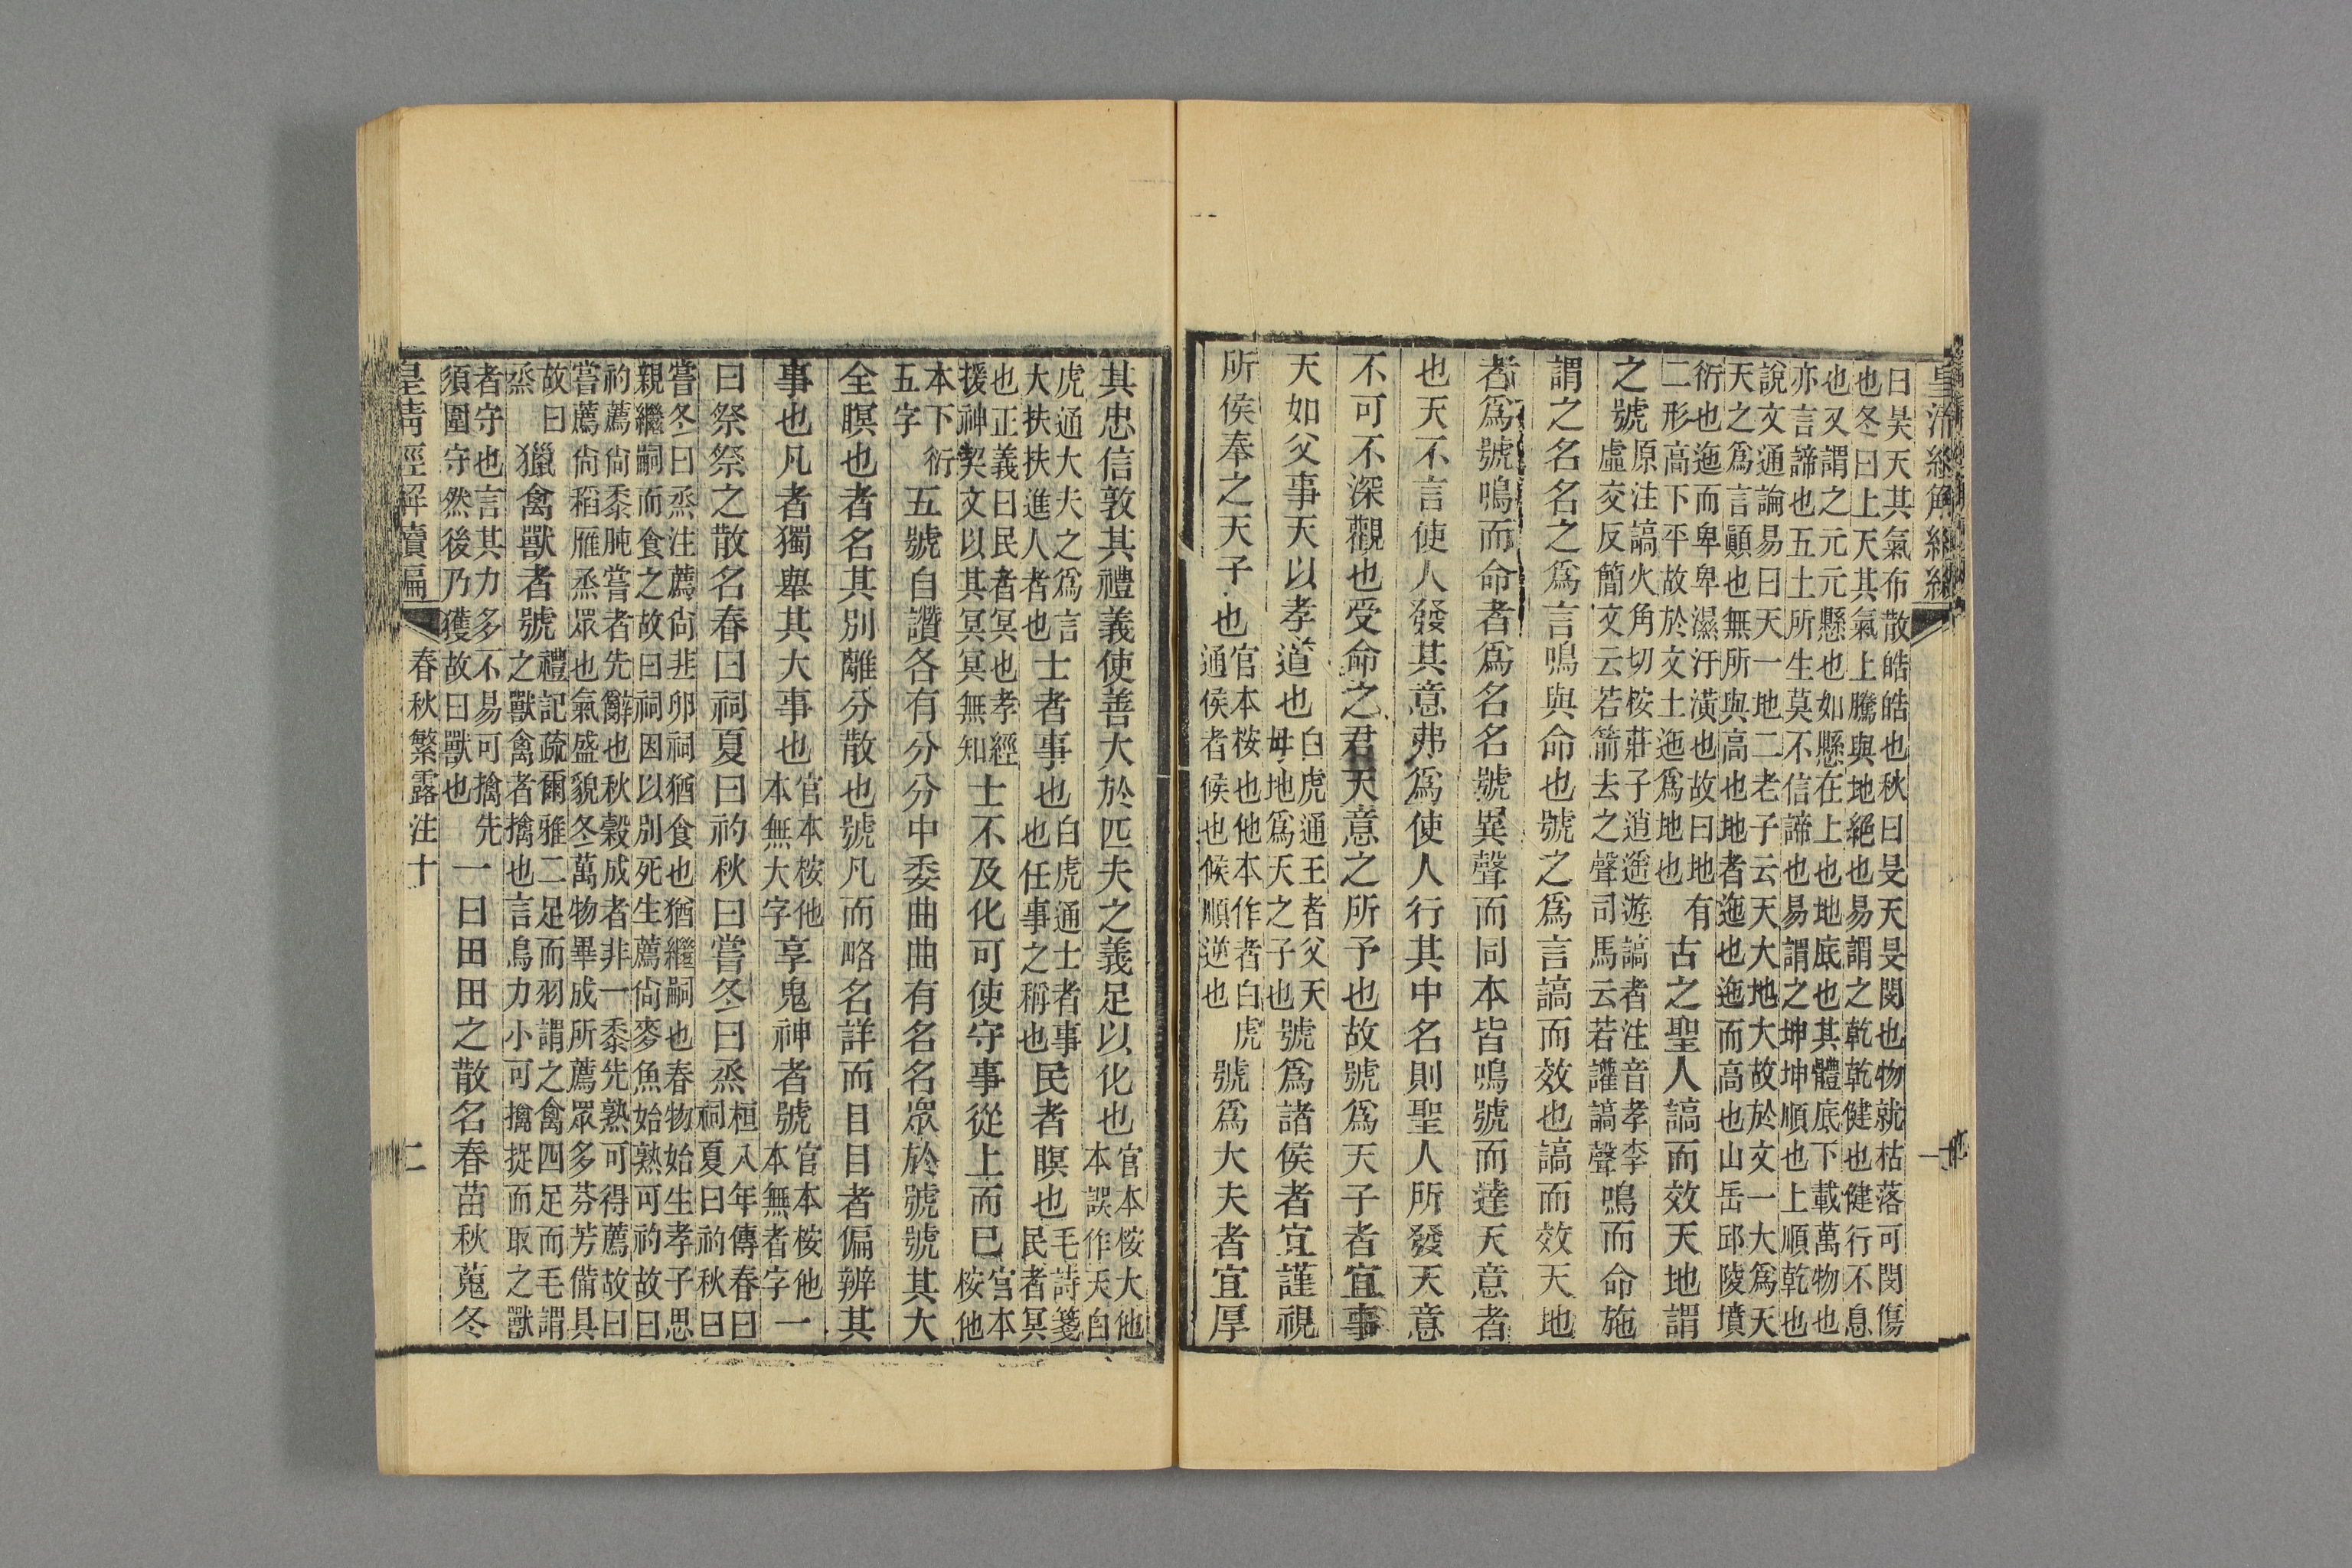 曰昊天其氣布散皓皓也秋曰旻天旻閔也物就枯落可閔傷
也冬曰上天其氣上騰與地絕也易謂之乾乾健也健行不息
也又謂之元元懸也如懸在上也地底也其體底下載萬物也
亦言諦也五土所生莫不信諦也易謂之坤坤順也上順乾也
說文通論易曰天一地二老子云天大地大故於文一大爲天
天之爲言顚也無所與高也地者迤也迤而高也山岳邱陵墳
衍也迤而卑卑濕汙潢也故曰地有
二形高下平故於文土迤爲地也
古之聖人謞而效天地謂
之號
原注謞火角切桉莊子逍遙遊謞者注音孝李
虛交反簡文云若箭去之聲司馬云若讙謞聲
鳴而命施
謂之名名之爲言鳴與命也號之爲言謞而效也謞而效天地
者爲號鳴而命者爲名名號異聲而同本皆鳴號而達天意者
也天不言使人發其意弗爲使人行其中名則聖人所發天意
不可不深觀也受命之君天意之所予也故號爲天子者宜事
天如父事天以孝道也
白虎通王者父天
母地爲天之子也
號爲諸侯者宜謹視
所侯奉之天子也
官本桉也他本作者白虎
通侯者候也候順逆也
號爲大夫者宜厚
其忠信敦其禮義使善大於匹夫之義足以化也
官本桉大他
本誤作天白
虎通大夫之爲言
大扶扶進人者也
士者事也
白虎通士者事
也任事之稱也
民者瞑也
毛詩箋
民者冥
也正義曰民者冥也孝經
援神契文以其冥冥無知
士不及化可使守事從上而已
官本
桉他
本下衍
五字
五號自讚各有分分中委曲曲有名名眾於號號其大
全瞑也者名其別離分散也號凡而略名詳而目目者偏辨其
事也凡者獨舉其大事也
官本桉他
本無大字
享鬼神者號
官本桉他
本無者字
一
曰祭祭之散名春曰祠夏曰礿秋曰嘗冬曰烝
桓八年傳春曰
祠夏曰礿秋曰
嘗冬曰烝注薦尙韭卵祠猶食也猶繼嗣也春物始生孝子思
親繼嗣而食之故曰祠因以別死生薦尙麥魚始熟可礿故曰
礿薦尙黍肫嘗者先辭也秋穀成者非一黍先熟可得薦故曰
嘗薦尙稻雁烝眾也氣盛貌冬萬物畢成所薦眾多芬芳備具
故曰
烝
獵禽獸者號
禮記疏爾雅二足而羽謂之禽四足而毛謂
之獸禽者擒也言鳥力小可擒捉而取之獸
者守也言其力多不易可擒先
須圍守然後乃獲故曰獸也
一曰田田之散名春苗秋蒐冬
皇清經解續編
春秋繁露注十
二